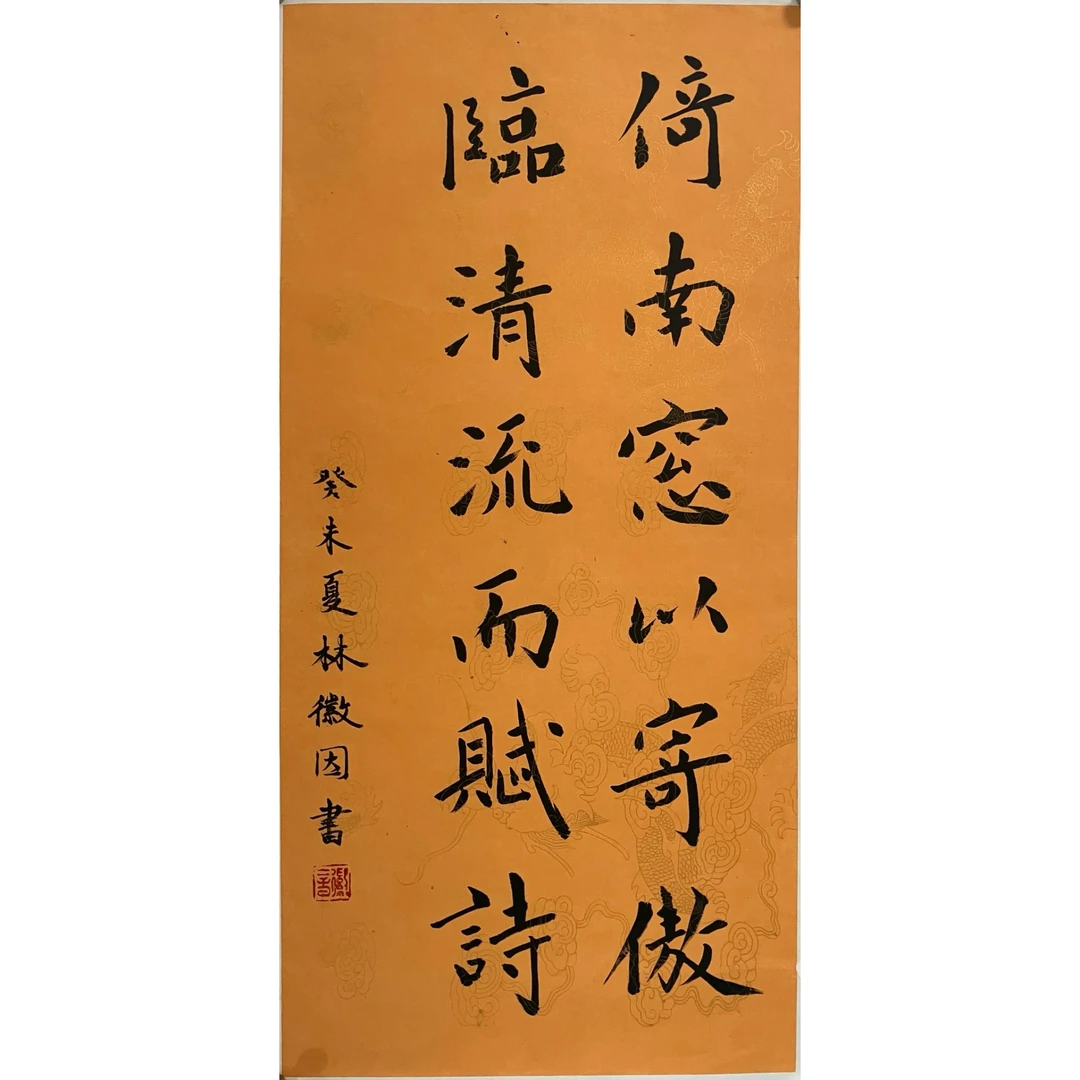 倚南窓以寄傲
臨清流而賦詩
癸未夏林徽因書
徽音